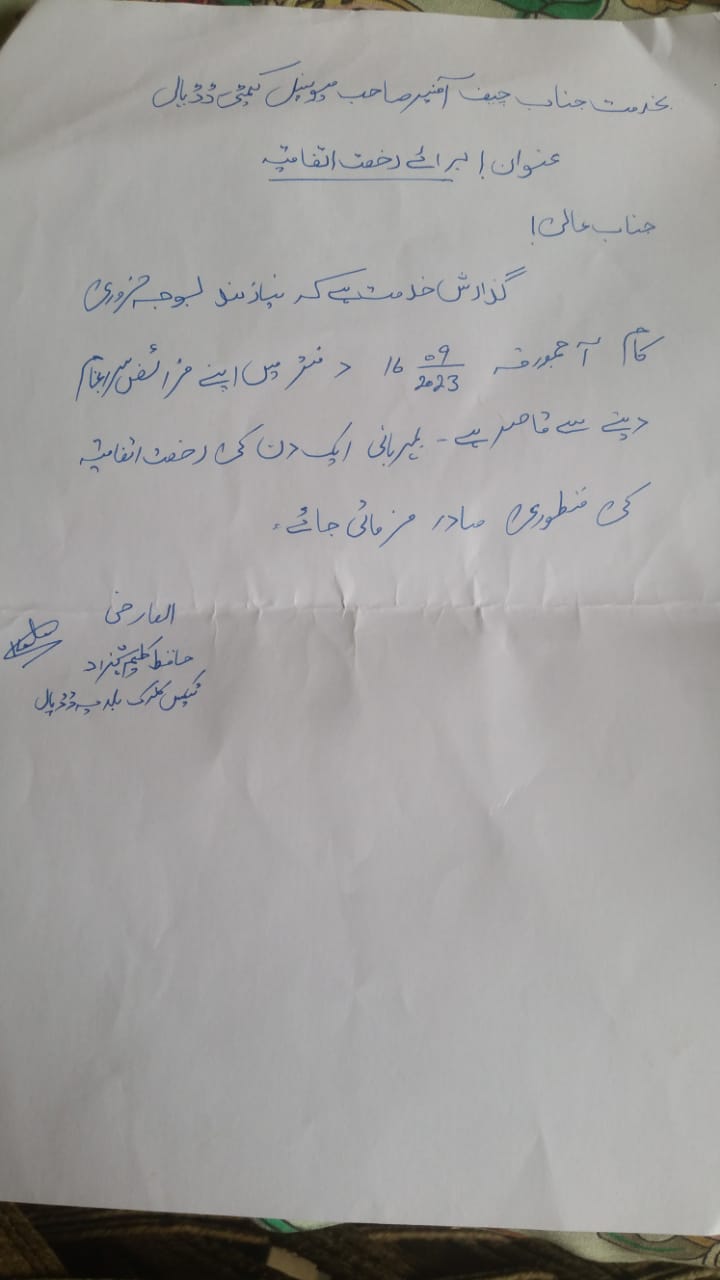 بخدمت جناب چیف آفیسر صاحب میونسپل کمیٹی ڈڈیال
عنوان! برائے رخصت اتفاقیہ
جناب عالی!
گذارش خدمت ہے کہ نیازمند بوجہ ضروری
کام آج مورخہ 16 09/2023 دفتر میں اپنے فرائض سرانجام
دینے سے قاصر ہے۔ بمہربانی ایک دن کی رخصت اتفاقیہ
کی منظوری صادر فرمائی جائے۔
العارض
حافظ کلیم شہزاد
ٹیکس کلرک بلدیہ ڈڈیال